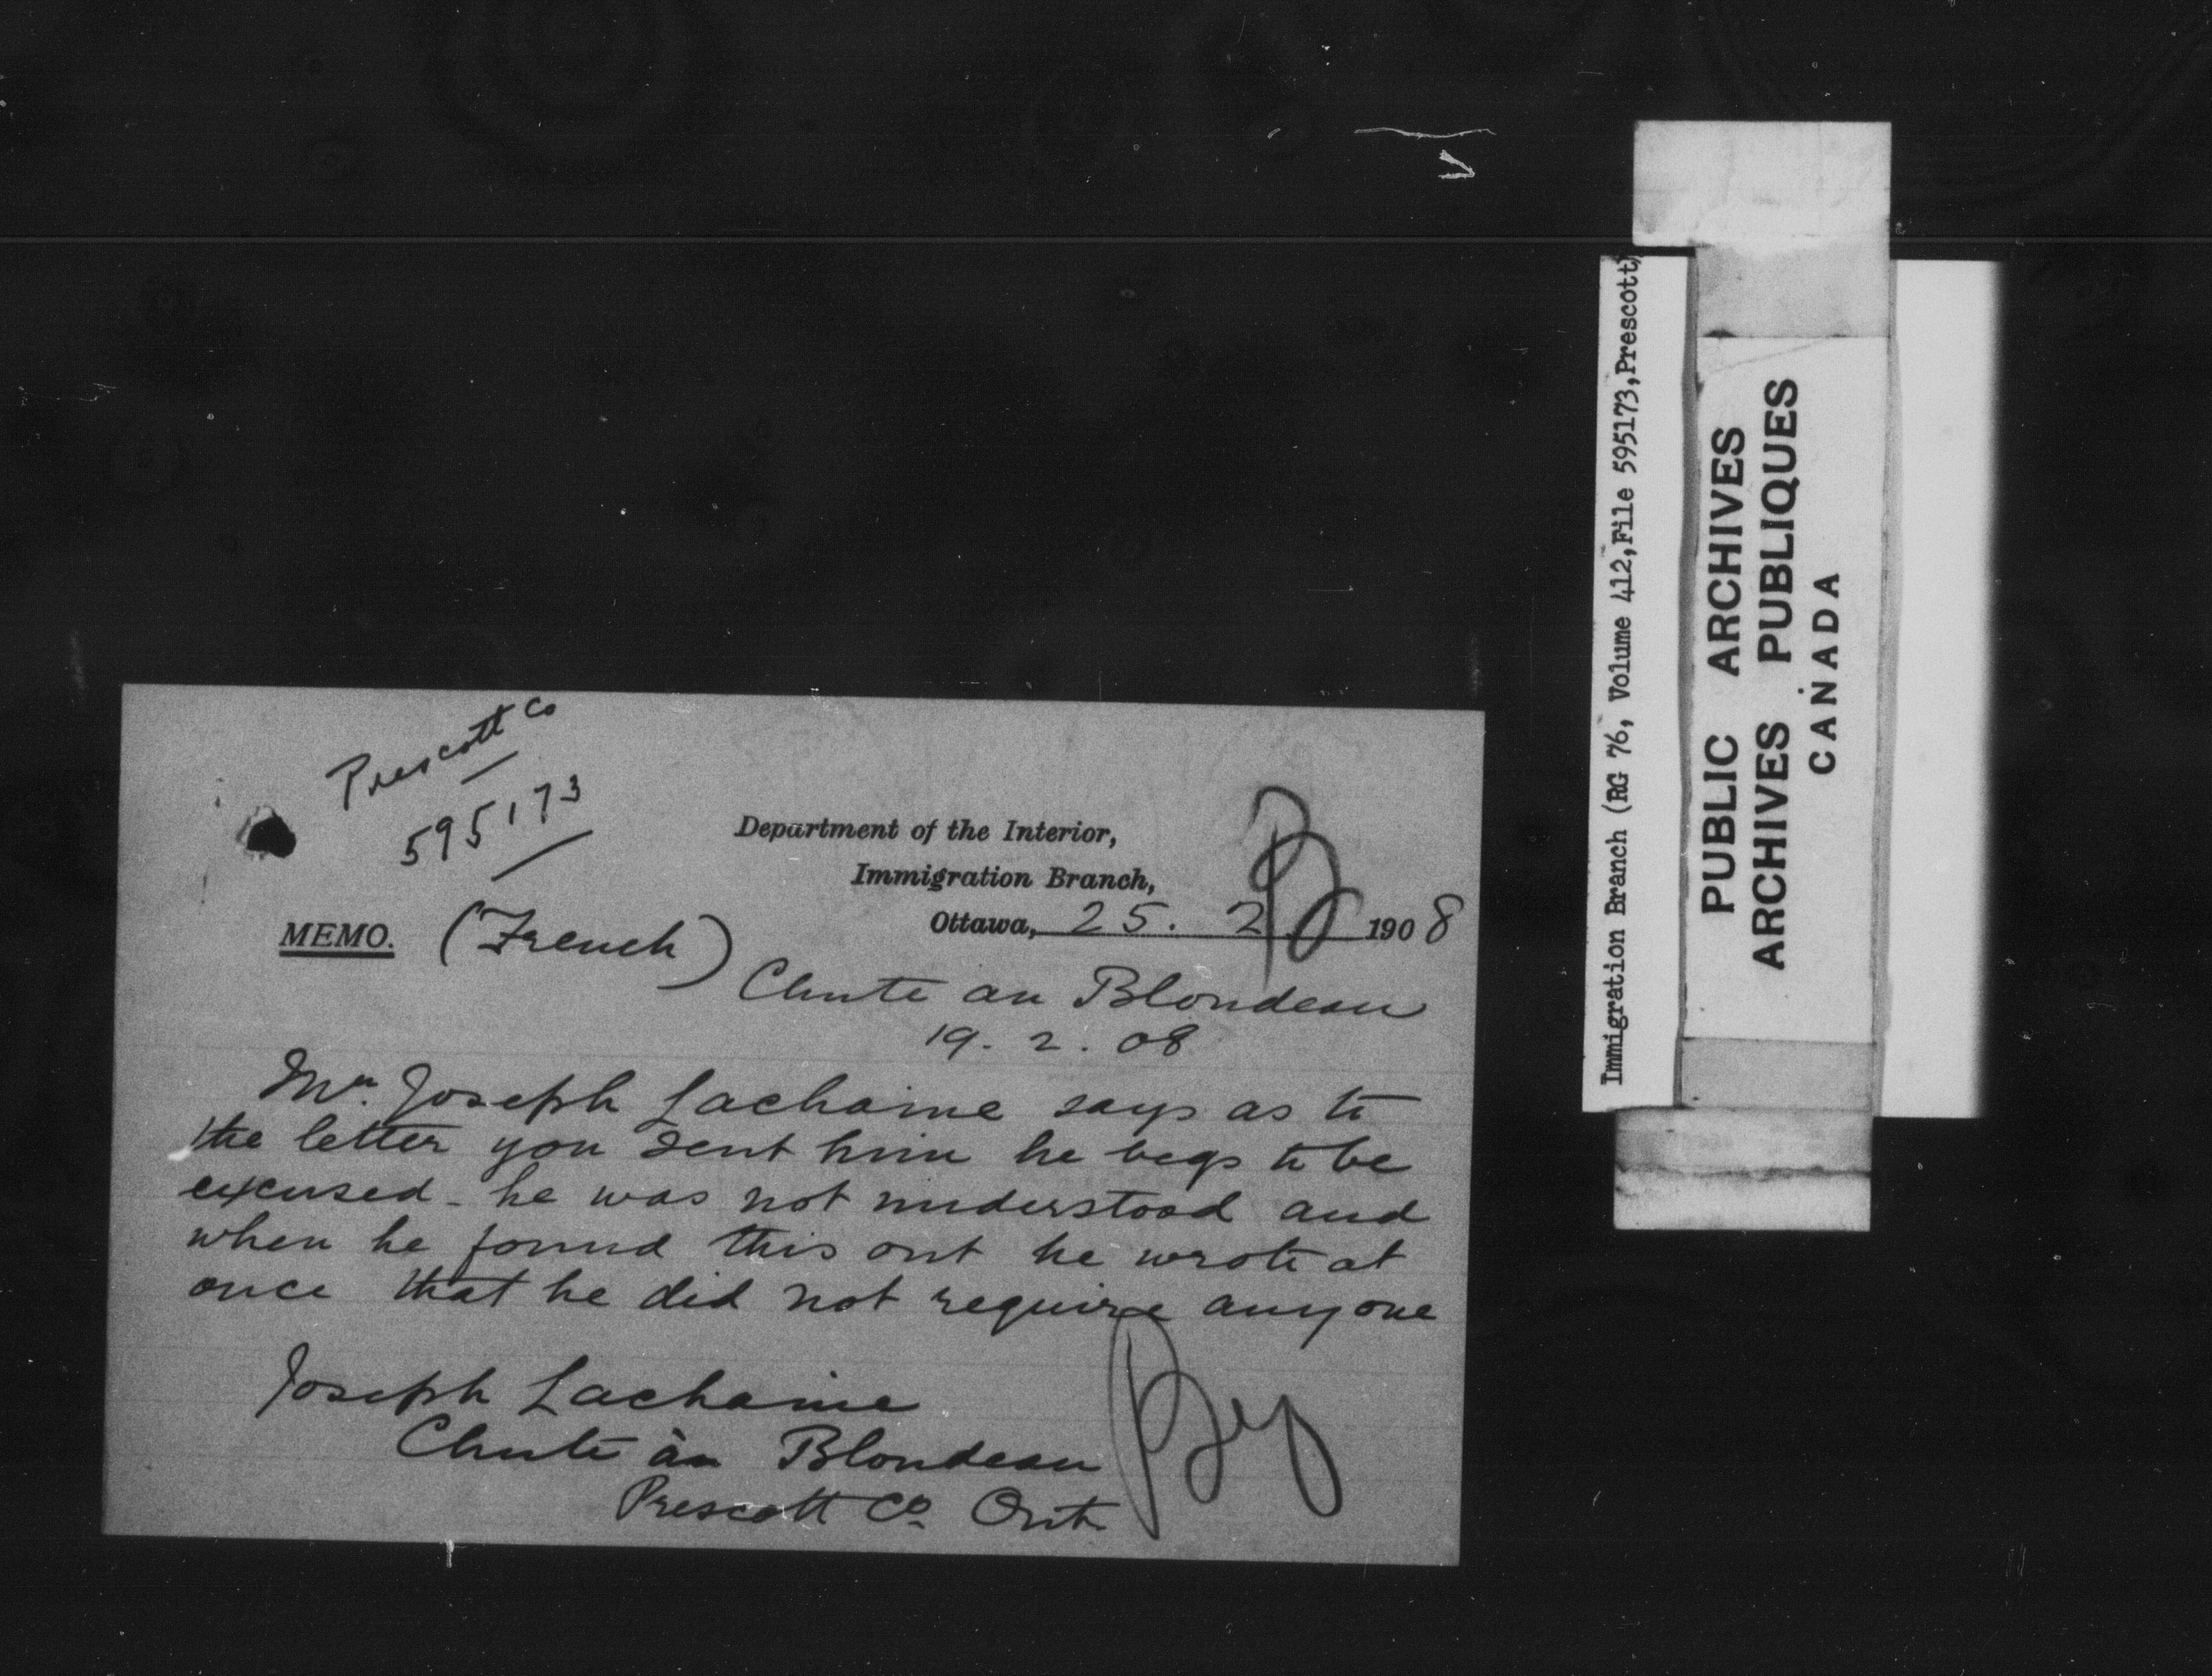 Prescott Co
595173
Department of the Interior,
Immigration Branch,
Ottawa, 25. 2 1908
MEMO. (French)
Chute au Blondeau
19. 2. 08
Mr. Joseph Lachaine says as to
the letter you sent him he begs to be
excused - he was not understood and
when he found this out he wrote at
once that he did not require anyone
Joseph Lachaine
Chute àu Blondeau
Prescott Co. Ont.
Immigration Branch (RG 76, Volume 412, File 595173, Prescott)
PUBLIC ARCHIVES
ARCHIVES PUBLIQUES
CANADA